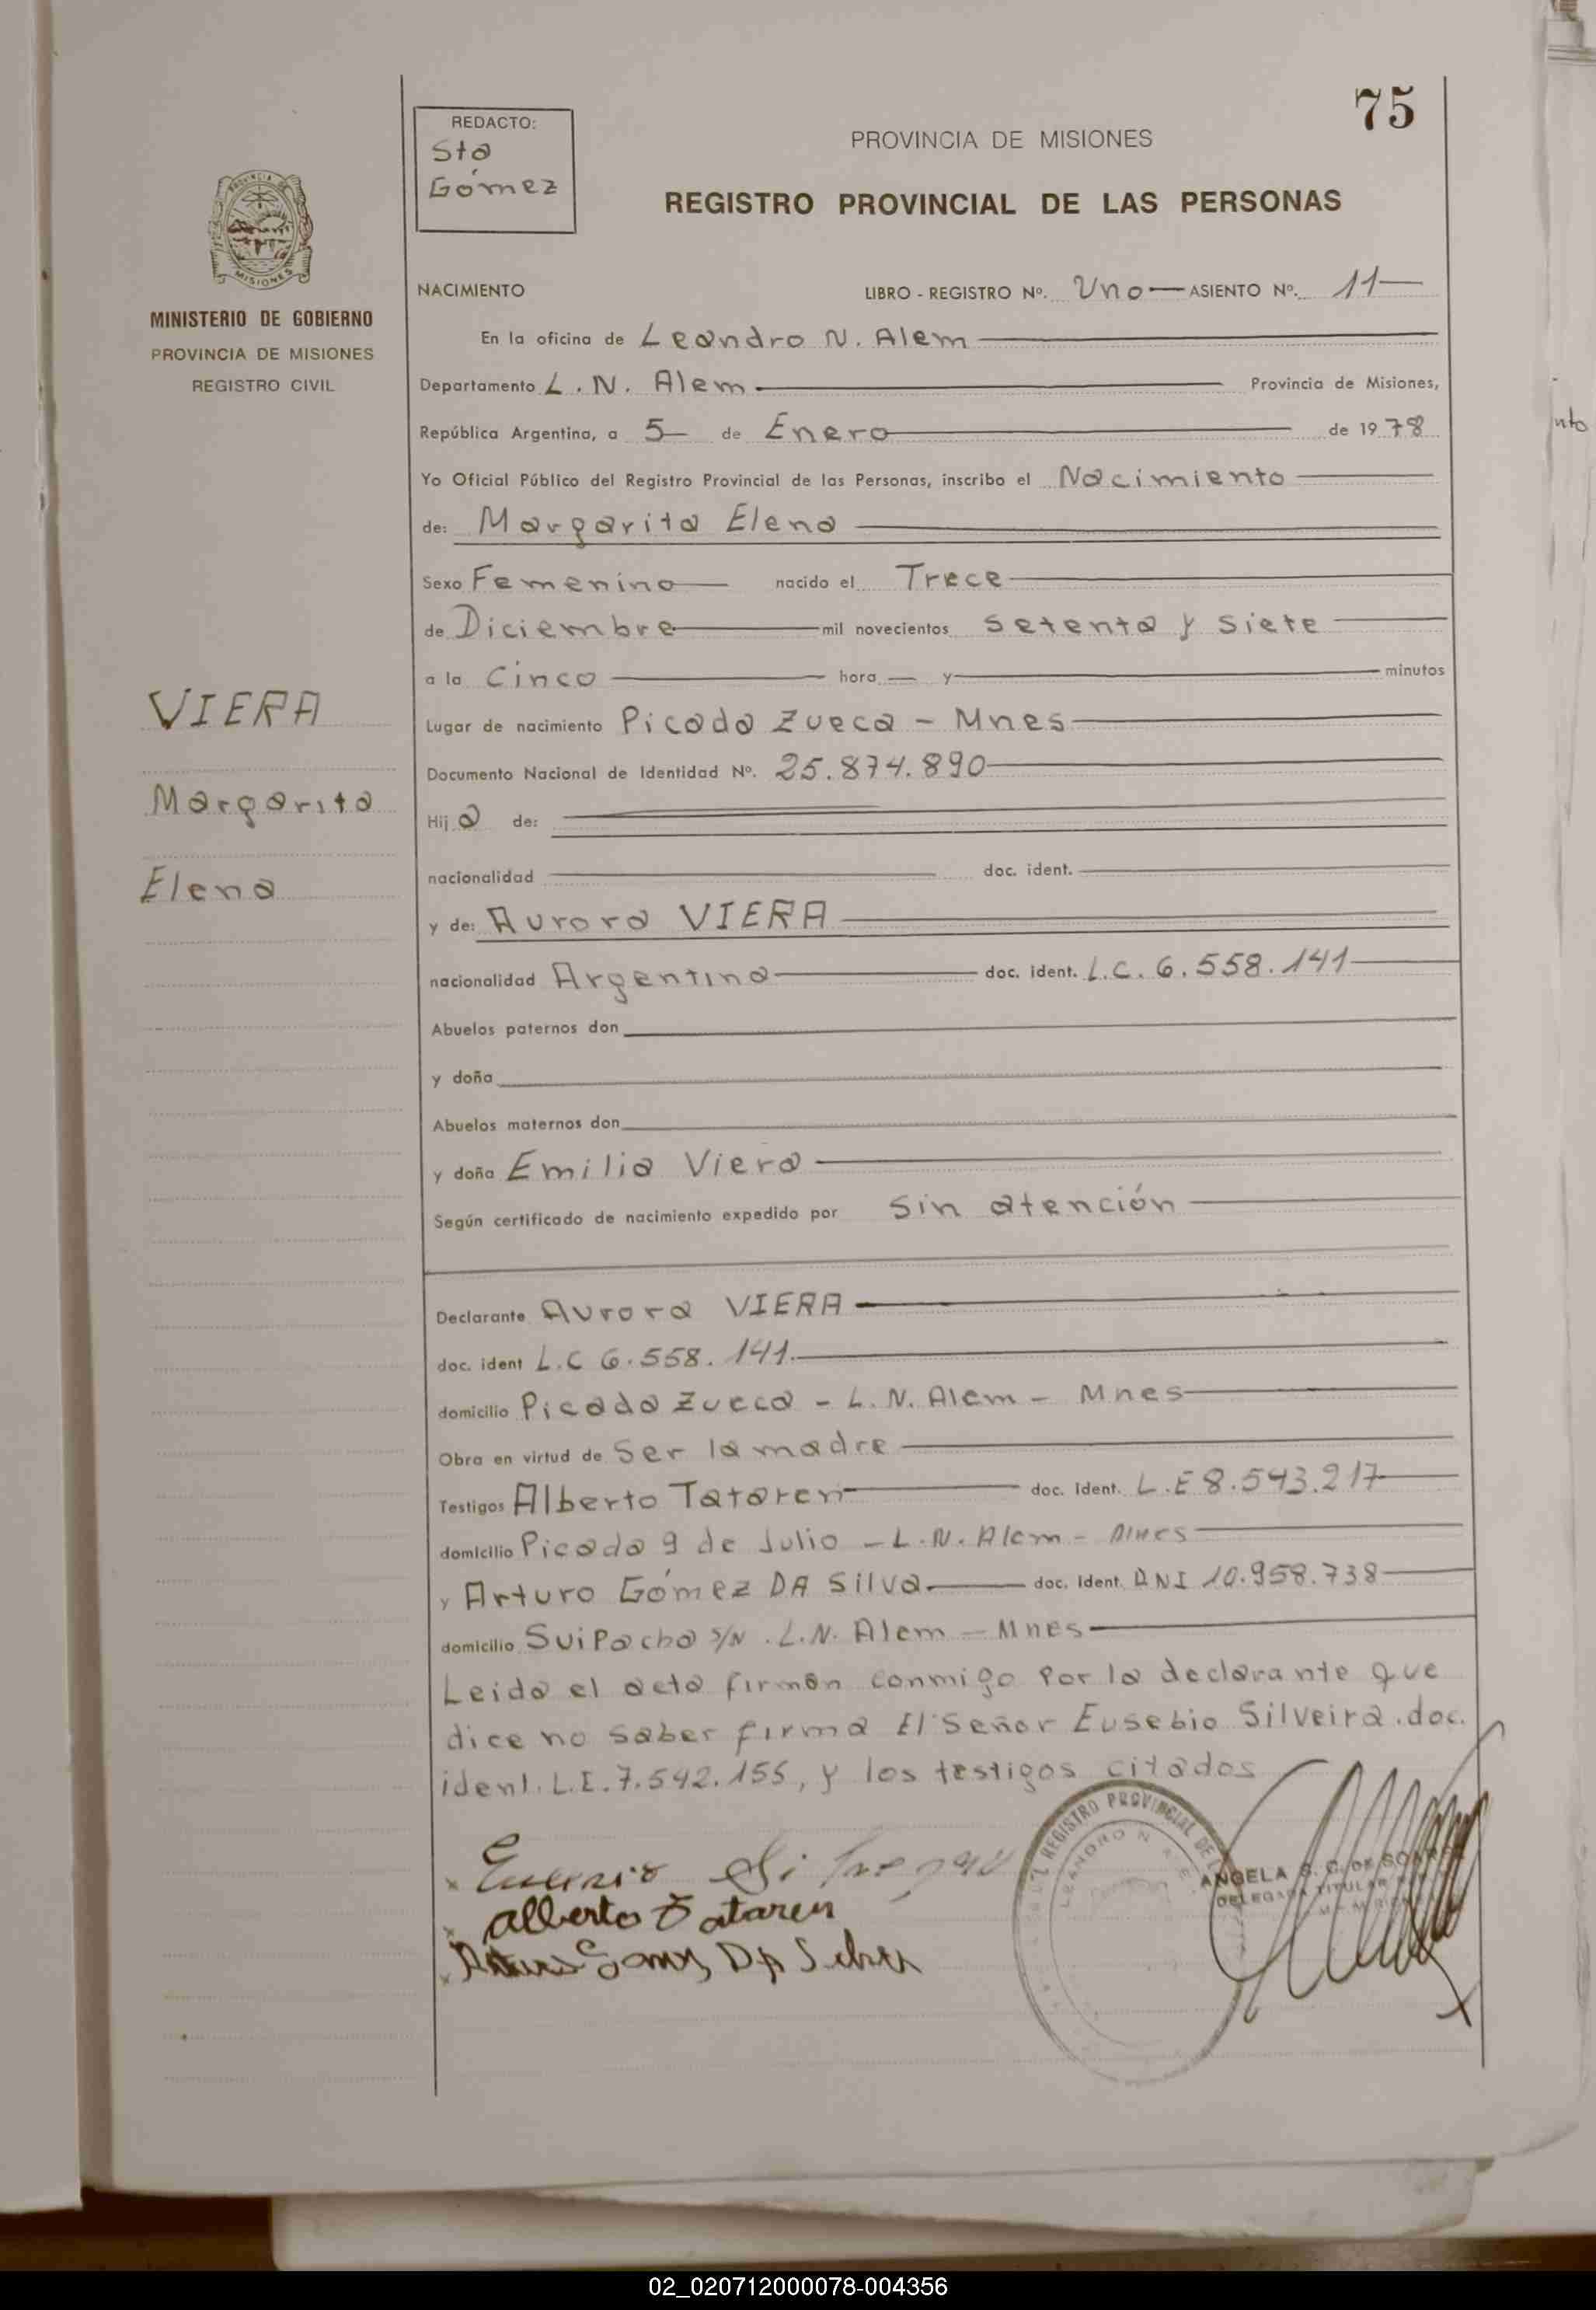 75
REDACTO:
Sta
Gómez
PROVINCIA DE MISIONES
REGISTRO PROVINCIAL DE LAS PERSONAS
PROVINCIA DE
MISIONES
MINISTERIO DE GOBIERNO
PROVINCIA DE MISIONES
REGISTRO CIVIL
VIERA
Margarita
Elena
NACIMIENTO LIBRO - REGISTRO Nº. Uno — ASIENTO Nº. 11
En la oficina de Leandro N. Alem
Departamento L. N. Alem Provincia de Misiones,
República Argentina, a 5 de Enero de 1978
Yo Oficial Público del Registro Provincial de las Personas, inscribo el Nacimiento
de: Margarita Elena
Sexo Femenino nacido el Trece
de Diciembre mil novecientos setenta y siete
a la Cinco hora — y — minutos
Lugar de nacimiento Picada Zueca - Mnes
Documento Nacional de Identidad Nº. 25.874.890
Hija de:
nacionalidad doc. ident.
y de: Aurora VIERA
nacionalidad Argentina doc. ident. L.C. 6.558.141
Abuelos paternos don
y doña
Abuelos maternos don
y doña Emilia Viera
Según certificado de nacimiento expedido por Sin atención
Declarante Aurora VIERA
doc. ident L.C 6.558.141.
domicilio Picada Zueca - L. N. Alem - Mnes
Obra en virtud de Ser la madre
Testigos Alberto Tataren doc. ident. L.E 8.543.217
domicilio Picada 9 de Julio - L.N. Alem - Mnes
y Arturo Gómez DA Silva doc. ident. DNI 10.958.738
domicilio Suipacha s/N . L.N. Alem - Mnes
Leida el acta firmán conmigo Por la declarante que
dice no saber firma El Señor Eusebio Silveira. doc.
ident. L.E. 7.542.155, y los testigos citados
Alberto Tataren
Arturo Gomez DA Silva
REGISTRO PROVINCIAL DE
LEANDRO N. ALE
ANGELA S. C. DE SOAREZ
DELEGADA TITULAR
02_020712000078-004356